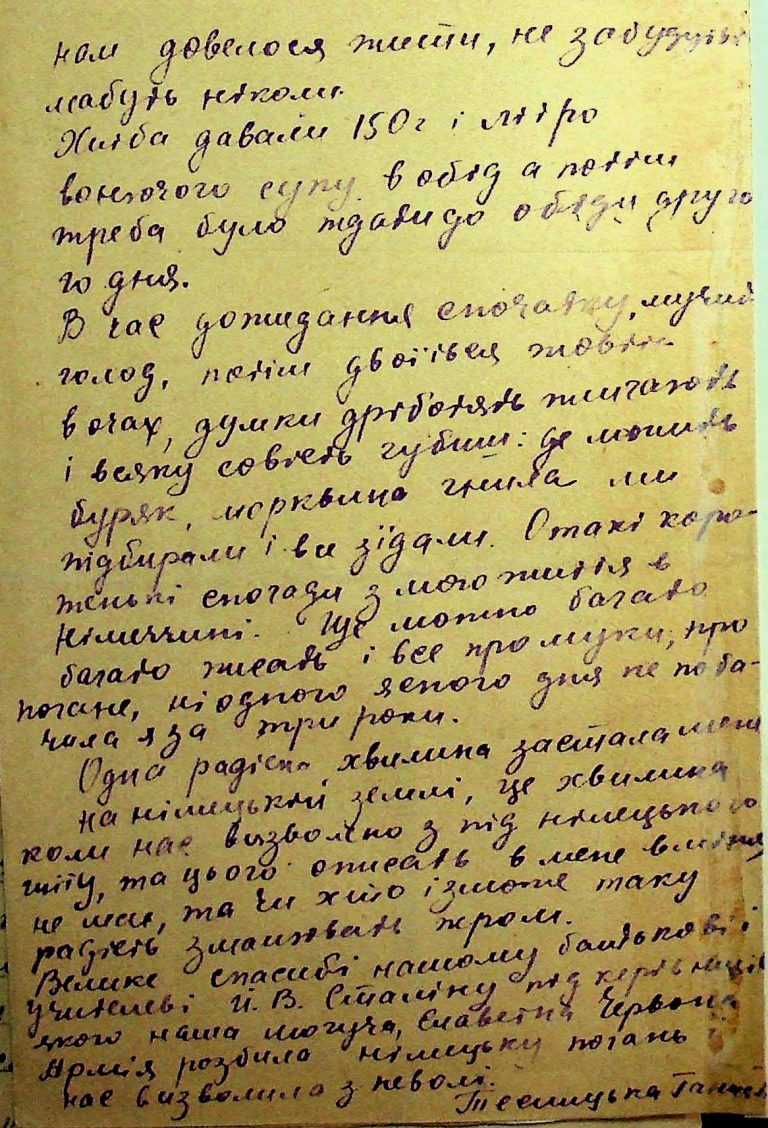 нам довелося жити, не забудуться
мабуть ніколи.
Хліба давали 150 г і літро
вонючого супу в обід а потім
треба було ждати до обіди друго
го дня.
В час дожидання спочатку, мучив
голод, потім двоїться жовті
в очах, думки дріботять шигають
і всяку совість губиш: де лежить
буряк, морквина гнила ми
підбирали і ви зїдали. Отакі харо-
женькі спогади з мого життя в
Німеччині. Ще можно багато
багато писать і все про муки, про
погане, ні одного ясного дня не поба-
чила я за три роки.
Одна радісна хвилина застала мене
на німецькій землі, це хвилина
коли нас визволено з під німецького
гніту, та цього описать в мене вміння
не має, та чи хто і зможе таку
радість змалювать пером.
Велике спасибі нашому батькові і
учителеві Й. В. Сталіну під керівницт
якого наша могуча, славетна Червона
Армія розбила німецьку погань і
нас визволила з неволі.
Теслицька